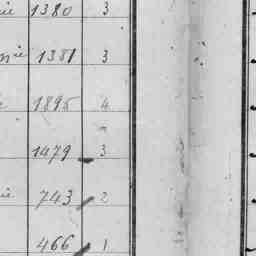 1380 3
1381 3
1895 4
1479 3
743 2
466 1